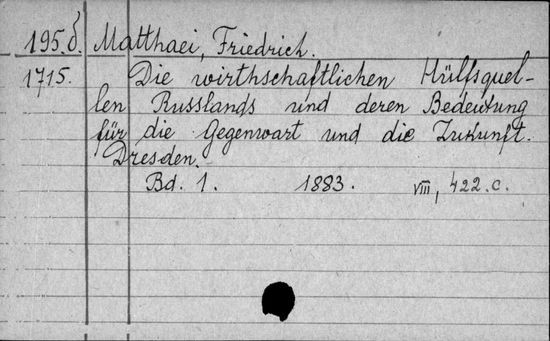 195.δ. Matthaei, Friedrich.
1715. Die wirthschaftlichen Hülfsquel-
len Russlands und deren Bedeutung
für die Gegenwart und die Zukunft.
Dresden.
Bd. 1. 1883. VIII, 422.c.